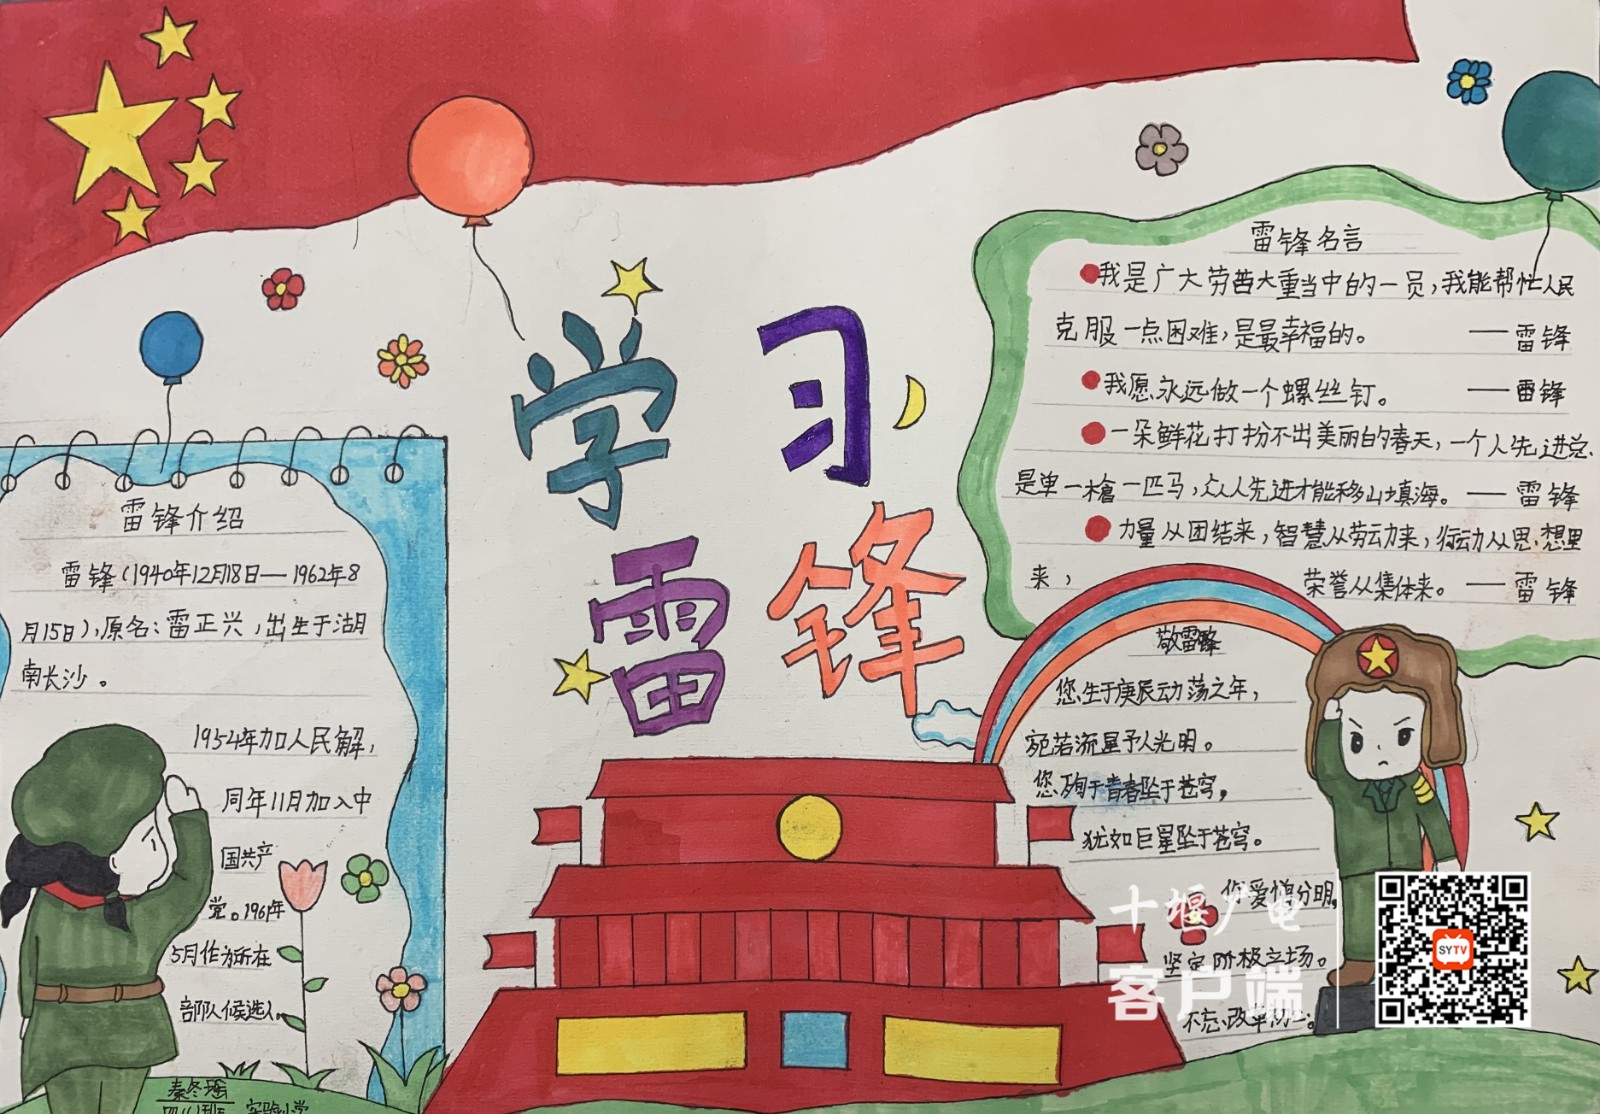 学习
雷锋
雷锋介绍
雷锋（1940年12月18日—1962年8
月15日），原名：雷正兴，出生于湖
南长沙。
1954年加人民解，
同年11月加入中
国共产
党。1961年
5月作为所在
部队候选人。
秦冬瑶
四(1)班 实验小学
雷锋名言
我是广大劳苦大重当中的一员，我能帮忙人民
克服一点困难，是最幸福的。 —雷锋
我愿永远做一个螺丝钉。 —雷锋
一朵鲜花打扮不出美丽的春天，一个人先进总
是单一枪一匹马，众人先进才能移山填海。—雷锋
力量从团结来，智慧从劳动力来，行动从思想里
来， 荣誉从集体来。—雷锋
敬雷锋
您生于庚辰动荡之年，
宛若流星予人光明。
您殉于青春坠于苍穹，
犹如巨星坠于苍穹。
你爱憎分明，
坚定阶极立场。
不忘改革
十堰广电
客户端
SYTV